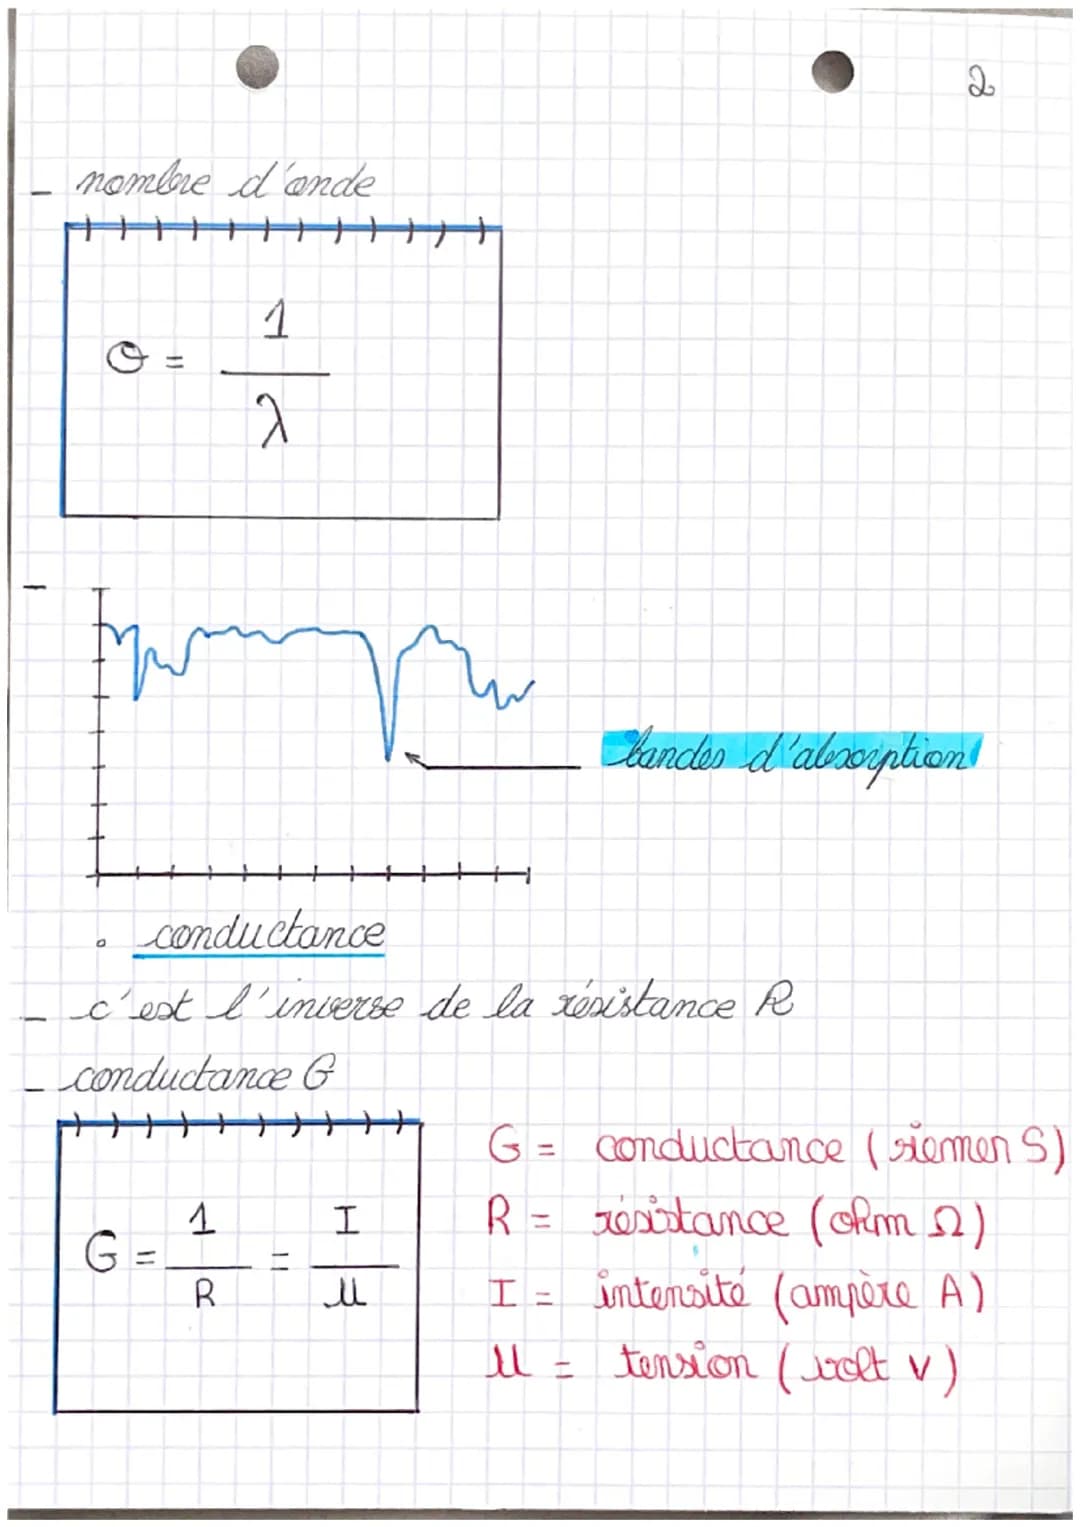 2
_ nombre d'onde
σ = 1 / λ
bandes d'absorption
• conductance
_ c'est l'inverse de la résistance R
_ conductance G
G = 1 / R = I / U
G = conductance (siemen S)
R = résistance (ohm Ω)
I = intensité (ampère A)
U = tension (volt V)